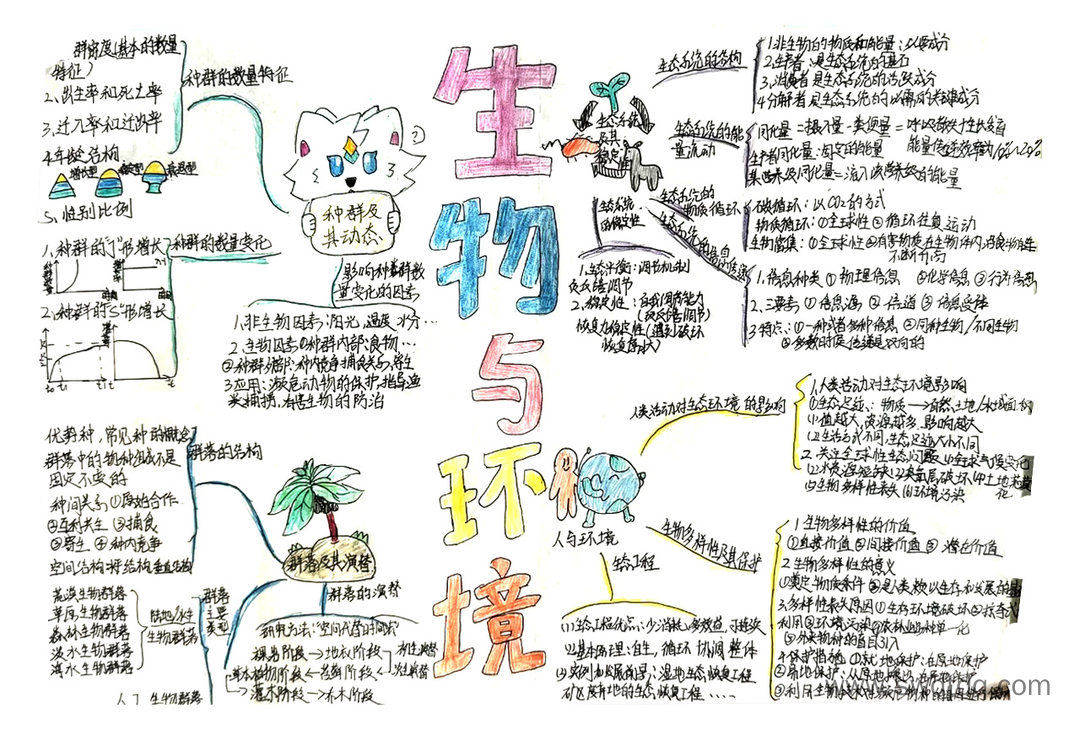 生物与环境
种群及
其动态
种群的数量特征
群密度(基本的数量
特征)
2、出生率和死亡率
3、迁入率和迁出率
4年龄结构
增长型
稳定型
衰退型
5、性别比例
种群的数量变化
1、种群的"J"形增长
2、种群的"S"形增长
影响种群数
量变化的因素
1、非生物因素:阳光,温度,水分…
2、生物因素①种群内部:食物…
②种群外部:种内竞争捕食关系,寄生
3应用:濒危动物的保护,指导渔
类捕捞,有害生物的防治
群落及其演替
群落的结构
优势种,常见种的概念
群落中的物种组成不是
固定不变的
种间关系①原始合作
②互利共生 ③捕食
③寄生 ④种内竞争
空间结构:
垂直结构
群落
主要
类型
陆地/水生
生物群落
荒漠生物群落
草原生物群落
森林生物群落
淡水生物群落
人工生物群落
群落的演替
研究方法:空间代替时间
裸岩阶段→地衣阶段
草本植物阶段←苔藓阶段
灌木阶段→乔木阶段
初生演替
次生演替
生态系统
及其
稳定性
生态系统的结构
1.非生物的物质和能量:必要成分
2.生产者:是生态系统的基石
3.消费者是生态系统的活跃成分
4分解者是生态系统的必需的关键成分
生态系统的能
量流动
同化量=摄入量-粪便量=呼吸散失+生长发育
能量传递效率为10%~20%
生产者同化量:固定的能量
生态系统的
物质循环
碳循环:以CO2的方式
物质循环:①全球性②循环往复运动
生物富集:①全球性②有害物质在生物体内,沿食物链
不断升高
1.信息种类①物理信息 ②化学信息 ③行为信息
2、三要素:①信息源 ②信道 ③信息受体
3特点:①一种或者多种信息 ②同种生物/不同生物
生态系统
的稳定性
1.生态平衡:调节机制
负反馈调节
2、稳定性:自我调节能力
(负反馈调节)
恢复力稳定性(遭到破坏
人与环境
人类活动对生态环境的影响
1、人类活动对生态环境影响
①生态足迹:物质→自然土地/水域面积
(1)值越大,资源越多,影响越大
(2)生活方式不同,生态足迹大小不同
2.关注全球性生态问题 (1)全球气候变化
(2)水资源短缺(3)臭氧层破坏(4)土地荒漠
化
(5)生物多样性丧失 (6)环境污染
生物多样性及其保护
1.生物多样性的价值
①直接价值②间接价值③潜在价值
2.生物多样性的意义
3.多样性丧失原因①生存环境破坏②掠夺式
利用③环境污染④农林业品种单一化
⑤外来物种的盲目引入
4保护措施①就地保护:在原地保护
②易地保护:从原地
生态工程
(1)生态工程优点:少消耗、多效益、可持续
(2)基本原理:自生,循环 协调 整体
(3)实例和发展前景:湿地生态恢复工程
矿区废弃地的生态恢复工程……